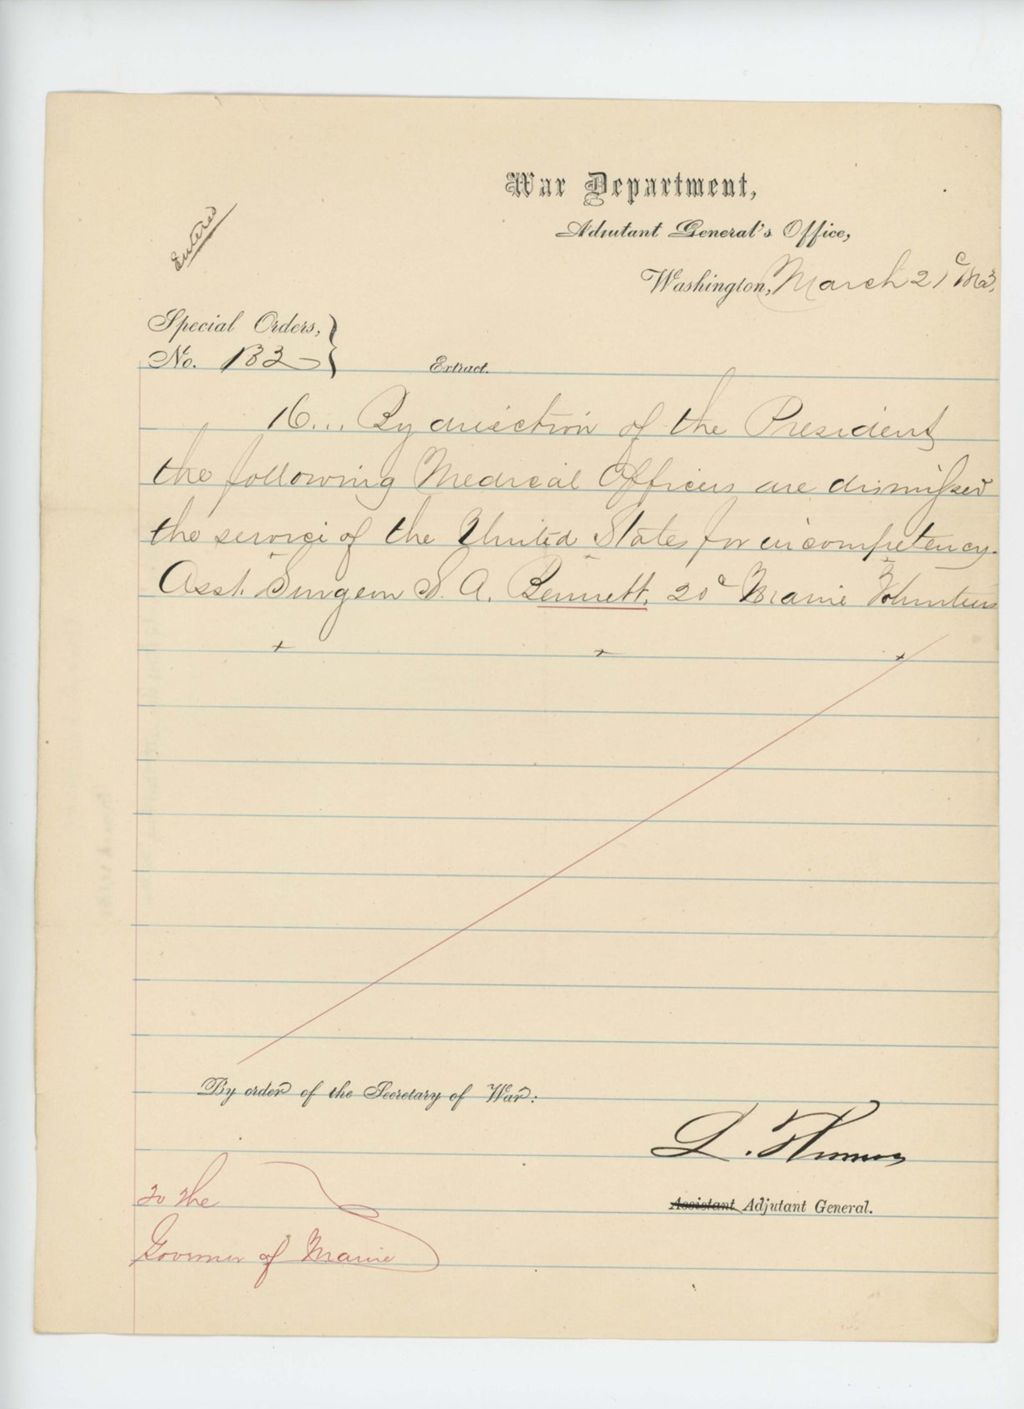 War Department,
Adjutant General's Office,
Entered
Washington, March 21st 1863.
Special Orders,
No. 132 Extract.
16... By direction of the President
the following Medical Officers are dismissed
the service of the United States for incompetency.
Asst. Surgeon S. A. Bennett, 20th Maine Volunteers
By order of the Secretary of War:
L. Thomas
Assistant Adjutant General.
To the
Governor of Maine